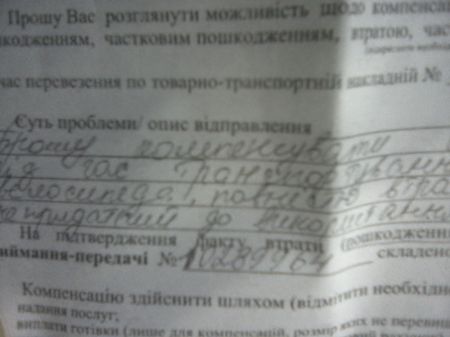 Прошу Вас розглянути можливість щодо компенсац
кодженням, частковим пошкодженням, втратою, час
час перевезення по товарно-транспортній накладній №
Суть проблеми/ опис відправлення
прошу компенсувати
під час транспортуванн
велосипеда, повністю втра
непридатний до використанн
На підтвердження факту втрати (пошкодженн
иймання-передачі № 10289964 складено
Компенсацію здійснити шляхом (відмітити необхідн
надання послуг;
виплати готівки (лише для компенсацій, розмір яких не перевищ